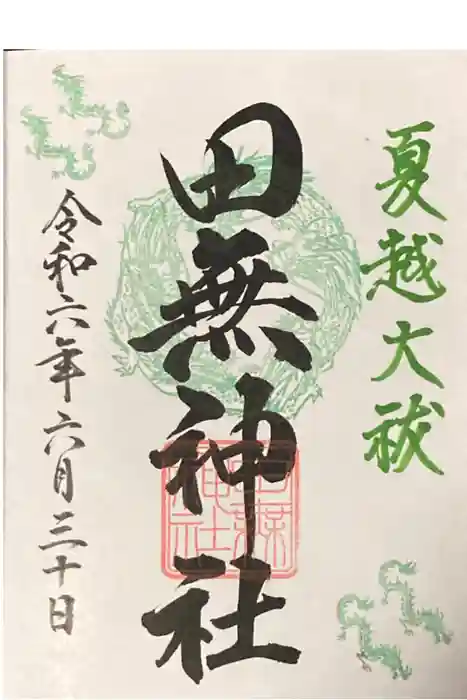 夏越大祓
田無神社
令和六年六月三十日